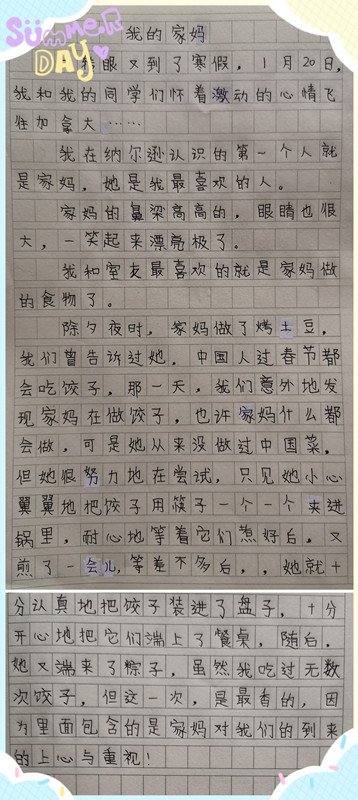 SUMMER
DAY
我的家妈
转眼又到了寒假，1月20日，
我和我的同学们怀着激动的心情飞
往加拿大……
我在纳尔逊认识的第一个人就
是家妈，她是我最喜欢的人。
家妈的鼻梁高高的，眼睛也很
大，一笑起来漂亮极了。
我和室友最喜欢的就是家妈做
的食物了。
除夕夜时，家妈做了烤土豆，
我们曾告诉过她，中国人过春节都
会吃饺子，那一天，我们意外地发
现家妈在做饺子，也许家妈什么都
会做，可是她从来没做过中国菜，
但她很努力地在尝试，只见她小心
翼翼地把饺子用筷子一个一个夹进
锅里，耐心地等着它们煮好后，又
煎了一会儿，等差不多后，，她就十
分认真地把饺子装进了盘子，十分
开心地把它们端上了餐桌，随后，
她又端来了粽子，虽然我吃过无数
次饺子，但这一次，是最香的，因
为里面包含的是家妈对我们的到来
的上心与重视！